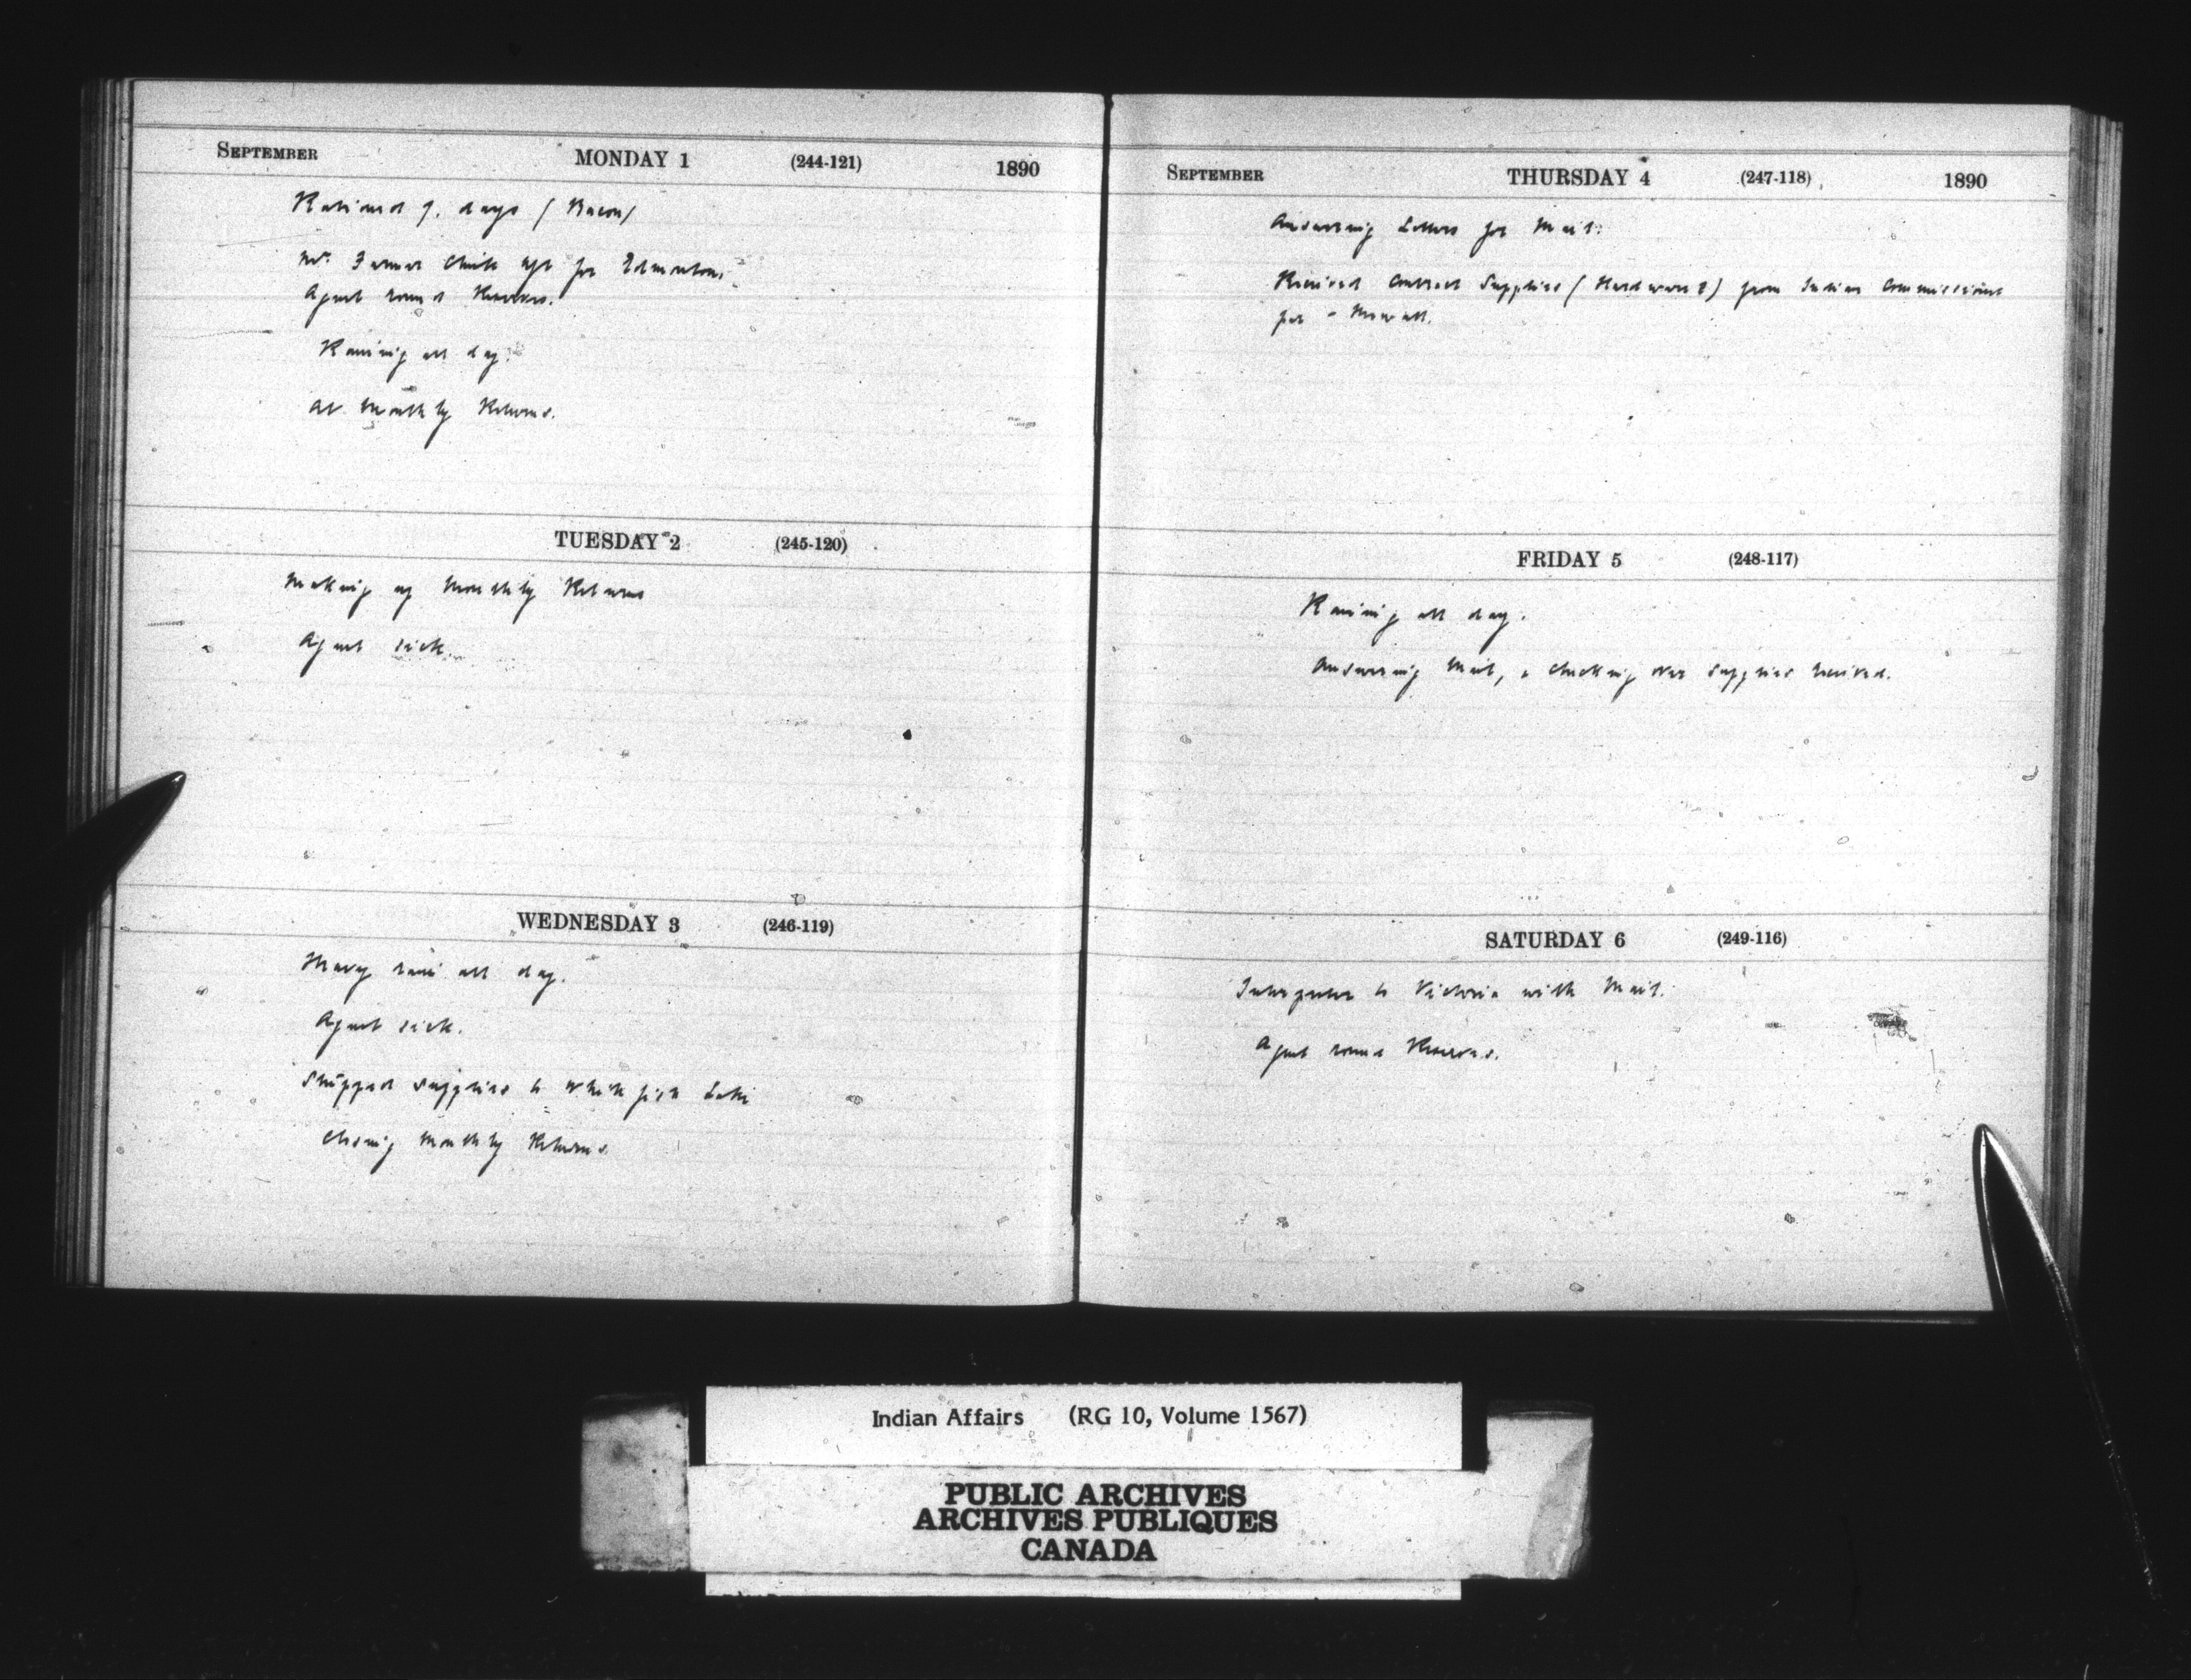 SEPTEMBER MONDAY 1 (244-121) 1890
Rationed 7. days (Bacon)
Mr. Farmer Clink left for Edmonton.
Agent round Reserves.
Raining all day.
At Monthly Returns.
TUESDAY 2 (245-120)
Making up Monthly Returns
Agent sick.
WEDNESDAY 3 (246-119)
Heavy rain all day.
Agent sick.
Shipped supplies to Whitefish Lake
Closing Monthly Returns
SEPTEMBER THURSDAY 4 (247-118) 1890
Answering Letters for Mail.
Received Contract Supplies (Hardware) from Indian Commissioner
per - Mowatt.
FRIDAY 5 (248-117)
Raining all day.
Answering Mail, & checking over supplies received.
SATURDAY 6 (249-116)
Interpreter to Victoria with Mail.
Agent round Reserves.
Indian Affairs (RG 10, Volume 1567)
PUBLIC ARCHIVES
ARCHIVES PUBLIQUES
CANADA